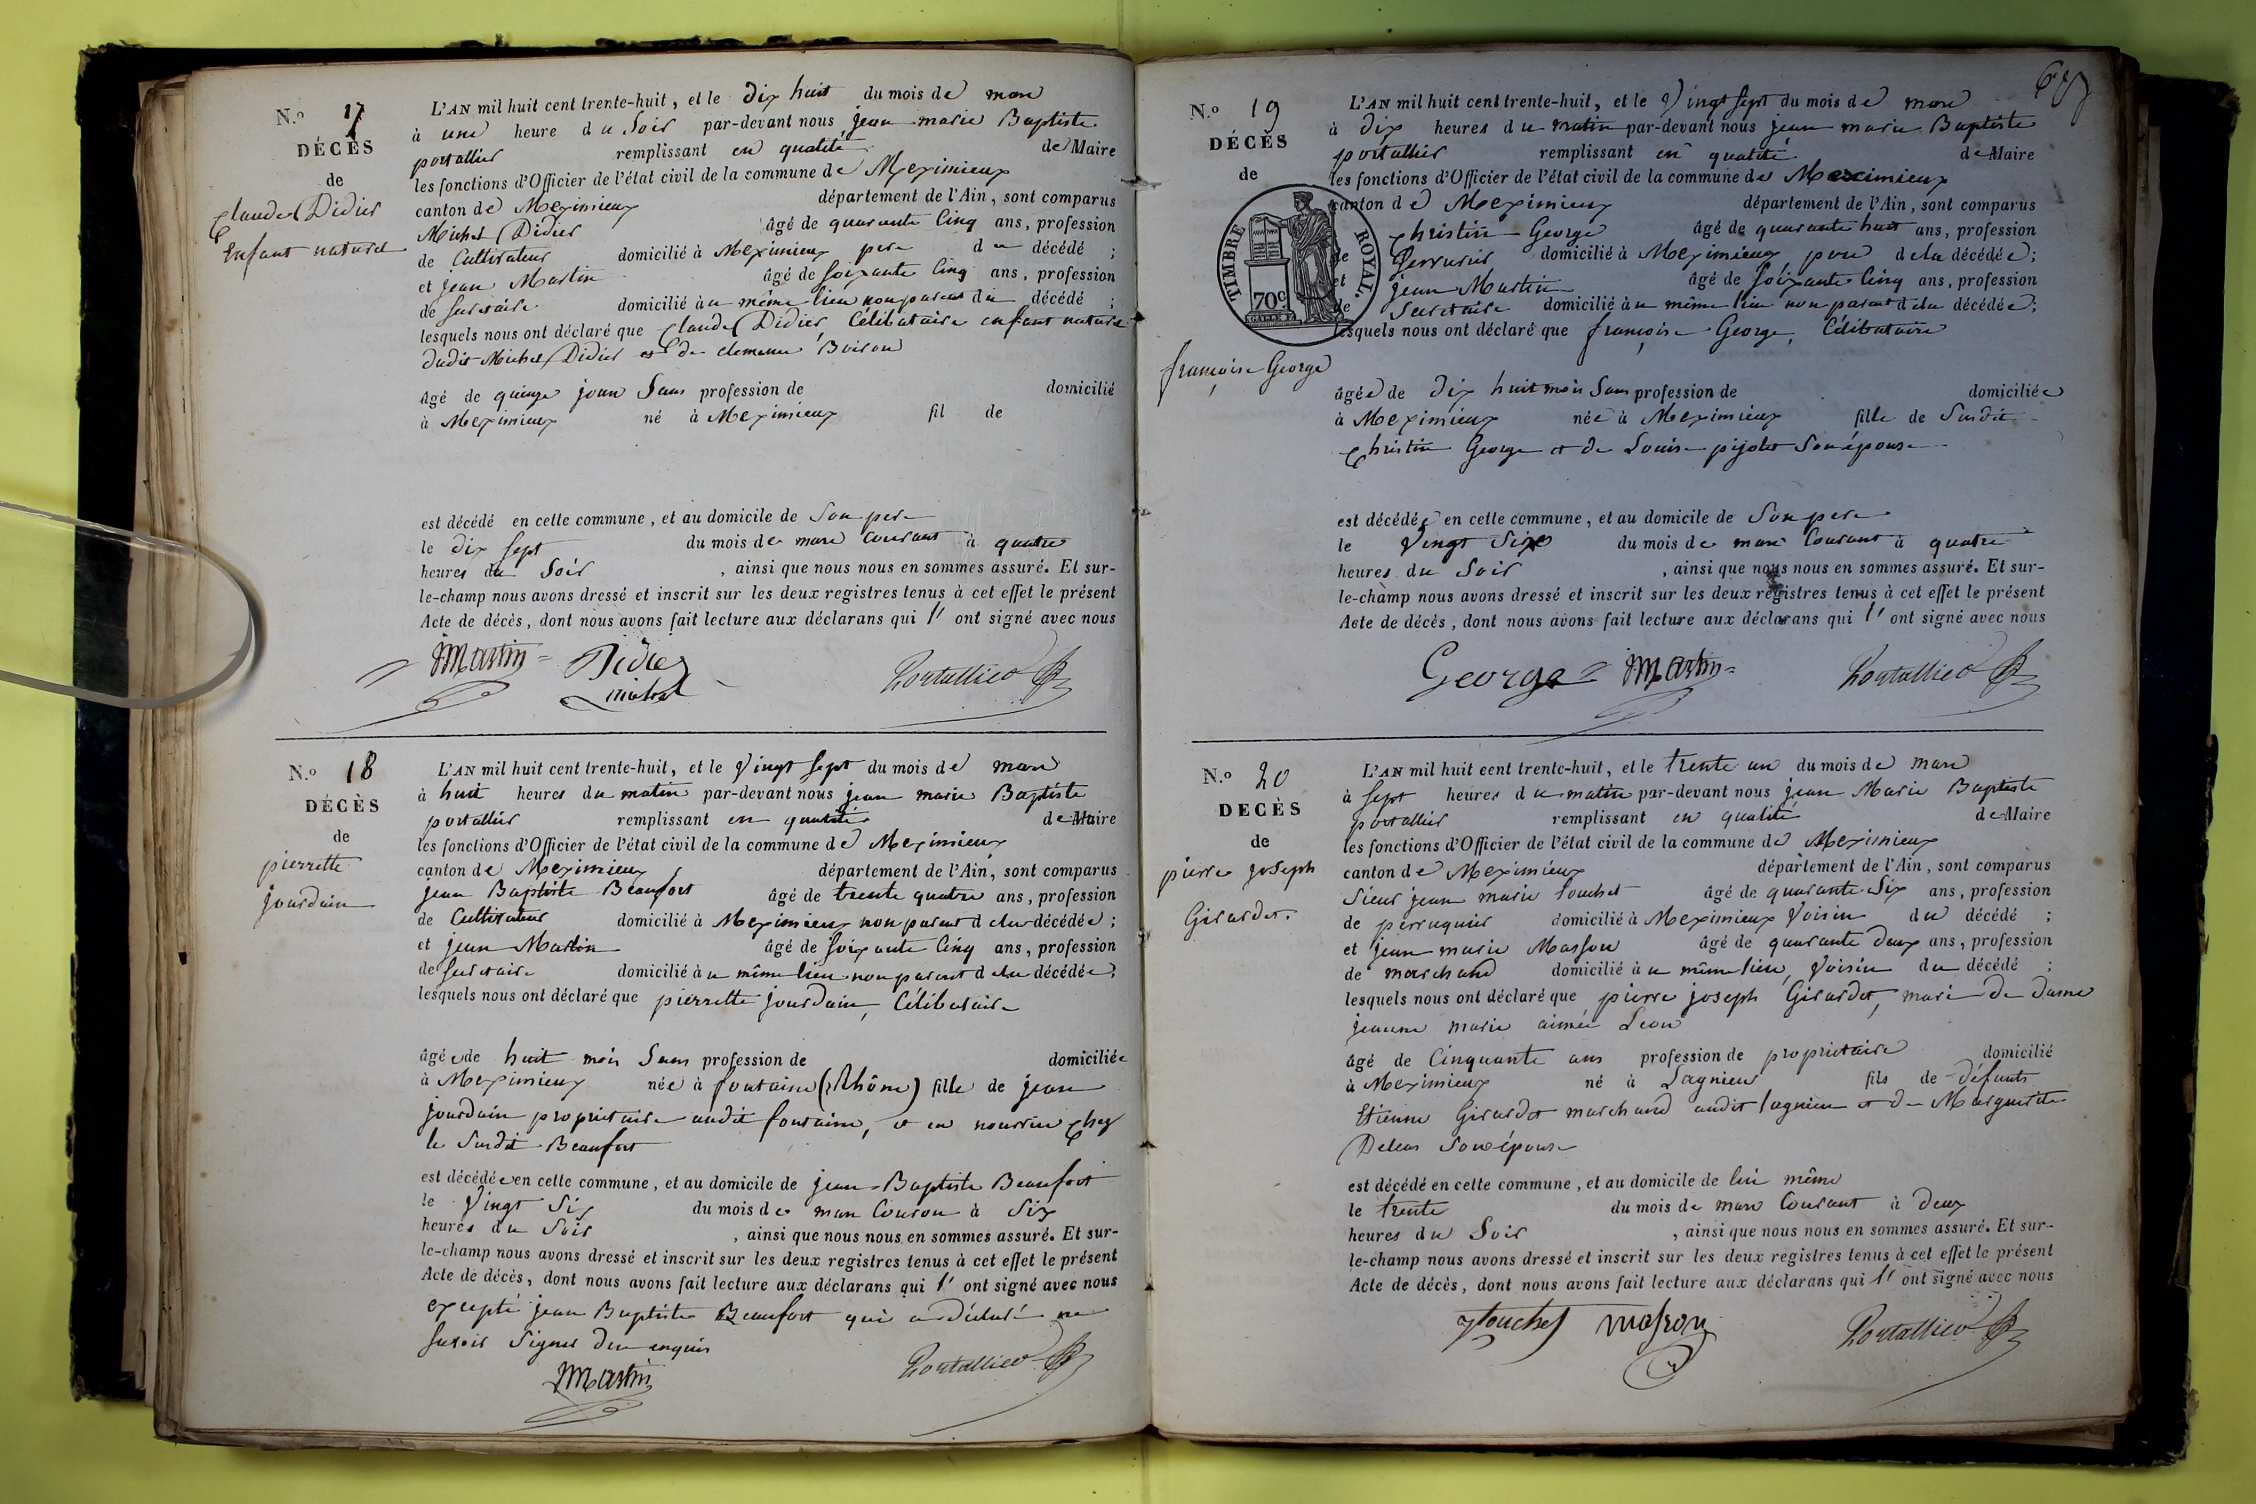 N.º 17
DÉCÈS
de
Claude Didier
Enfant naturel
L'AN mil huit cent trente-huit, et le dix huit du mois de mars
à une heure du Soir par-devant nous jean marie Baptiste
portallier remplissant en qualité de Maire
les fonctions d'Officier de l'état civil de la commune de Meximieux
canton de Meximieux département de l'Ain, sont comparus
Michel Didier âgé de quarante Cinq ans, profession
de Cultivateur domicilié à Meximieux pere du décédé ;
et jean Martin âgé de soixante Cinq ans, profession
de secretaire domicilié à u même lieu non parent du décédé ;
lesquels nous ont déclaré que Claude Didier Célibataire enfant naturel
dudit Michel Didier et de clemence Boiron
âgé de quinze jours Sans profession de domicilié
à Meximieux né à Meximieux fil de
est décédé en cette commune, et au domicile de Son pere
le dix sept du mois de mars Courant à quatre
heures du Soir , ainsi que nous nous en sommes assuré. Et sur-
le-champ nous avons dressé et inscrit sur les deux registres tenus à cet effet le présent
Acte de décès, dont nous avons fait lecture aux déclarans qui l' ont signé avec nous
Martin Didier
michel
Portallier
N.º 18
DÉCÈS
de
pierrette
jourdain
L'AN mil huit cent trente-huit, et le Vingt sept du mois de mars
à huit heures du matin par-devant nous jean marie Baptiste
portallier remplissant en qualité de Maire
les fonctions d'Officier de l'état civil de la commune de Meximieux
canton de Meximieux département de l'Ain, sont comparus
jean Baptiste Beaufort âgé de trente quatre ans, profession
de Cultivateur domicilié à Meximieux non parent de la décédée ;
et jean Martin âgé de soixante Cinq ans, profession
de secretaire domicilié à u même lieu non parent de la décédée ;
lesquels nous ont déclaré que pierrette jourdain, Célibataire
âgé e de huit mois Sans profession de domiciliée
à Meximieux née à fontaine (Rhône) fille de jean
jourdain propriétaire audit fontaine, et en nourrice chez
le Susdit Beaufort
est décédée en cette commune, et au domicile de jean-Baptiste Beaufort
le Vingt Six du mois de mars Courant à Six
heures du Soir , ainsi que nous nous en sommes assuré. Et sur-
le-champ nous avons dressé et inscrit sur les deux registres tenus à cet effet le présent
Acte de décès, dont nous avons fait lecture aux déclarans qui l' ont signé avec nous
excepté jean Baptiste Beaufort qui a déclaré ne
savoir Signer de ce enquis
Martin Portallier
N.º 19
DÉCÈS
de
TIMBRE ROYAL.
70c
françoise George
L'AN mil huit cent trente-huit, et le Vingt sept du mois de mars
à dix heures du matin par-devant nous jean marie Baptiste
portallier remplissant en qualité de Maire
les fonctions d'Officier de l'état civil de la commune de Meximieux
canton de Meximieux département de l'Ain, sont comparus
Christin George âgé de quarante huit ans, profession
de Serrurier domicilié à Meximieux pere de la décédée ;
et jean Martin âgé de soixante Cinq ans, profession
de Secretaire domicilié à u même lieu non parent de la décédée ;
lesquels nous ont déclaré que françoise George, Célibataire
âgée de dix huit mois Sans profession de domiciliée
à Meximieux née à Meximieux fille de Susdit
Christin George et de Louise pijolet Son épouse
est décédée en cette commune, et au domicile de Son pere
le Vingt Six du mois de mars Courant à quatre
heures du Soir , ainsi que nous nous en sommes assuré. Et sur-
le-champ nous avons dressé et inscrit sur les deux registres tenus à cet effet le présent
Acte de décès, dont nous avons fait lecture aux déclarans qui l' ont signé avec nous
George Martin Portallier
N.º 20
DECÈS
de
pierre joseph
Girardet.
L'AN mil huit cent trente-huit, et le trente un du mois de mars
à sept heures du matin par-devant nous jean Marie Baptiste
portallier remplissant en qualité de Maire
les fonctions d'Officier de l'état civil de la commune de Meximieux
canton de Meximieux département de l'Ain, sont comparus
Sieur jean marie Touchet âgé de quarante Six ans, profession
de perruquier domicilié à Meximieux Voisin du décédé ;
et jean marie Masson âgé de quarante deux ans, profession
de marchand domicilié à u même lieu, Voisin du décédé ;
lesquels nous ont déclaré que pierre joseph Girardet, mari de dame
jeanne marie aimée Leou
âgé de Cinquante ans profession de propriétaire domicilié
à Meximieux né à Lagnieu fils de défunts
Etienne Girardet marchand audit lagnieu et de Marguerite
Deleas Son épouse
est décédé en cette commune, et au domicile de lui même
le trente du mois de mars Courant à deux
heures du Soir , ainsi que nous nous en sommes assuré. Et sur-
le-champ nous avons dressé et inscrit sur les deux registres tenus à cet effet le présent
Acte de décès, dont nous avons fait lecture aux déclarans qui l' ont signé avec nous
Touchet masson Portallier